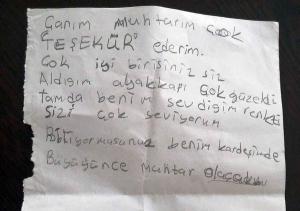 Canım muhtarım çook
TEŞEKÜR ederim.
Çok iyi birisiniz siz
Aldığım ayakkapı çok güzeldi
Tamda benim sevdiğim renkdi
Sizi çok seviyorum
Biliyormusunuz benim kardeşimde
Büyüğünce muhtar olacak